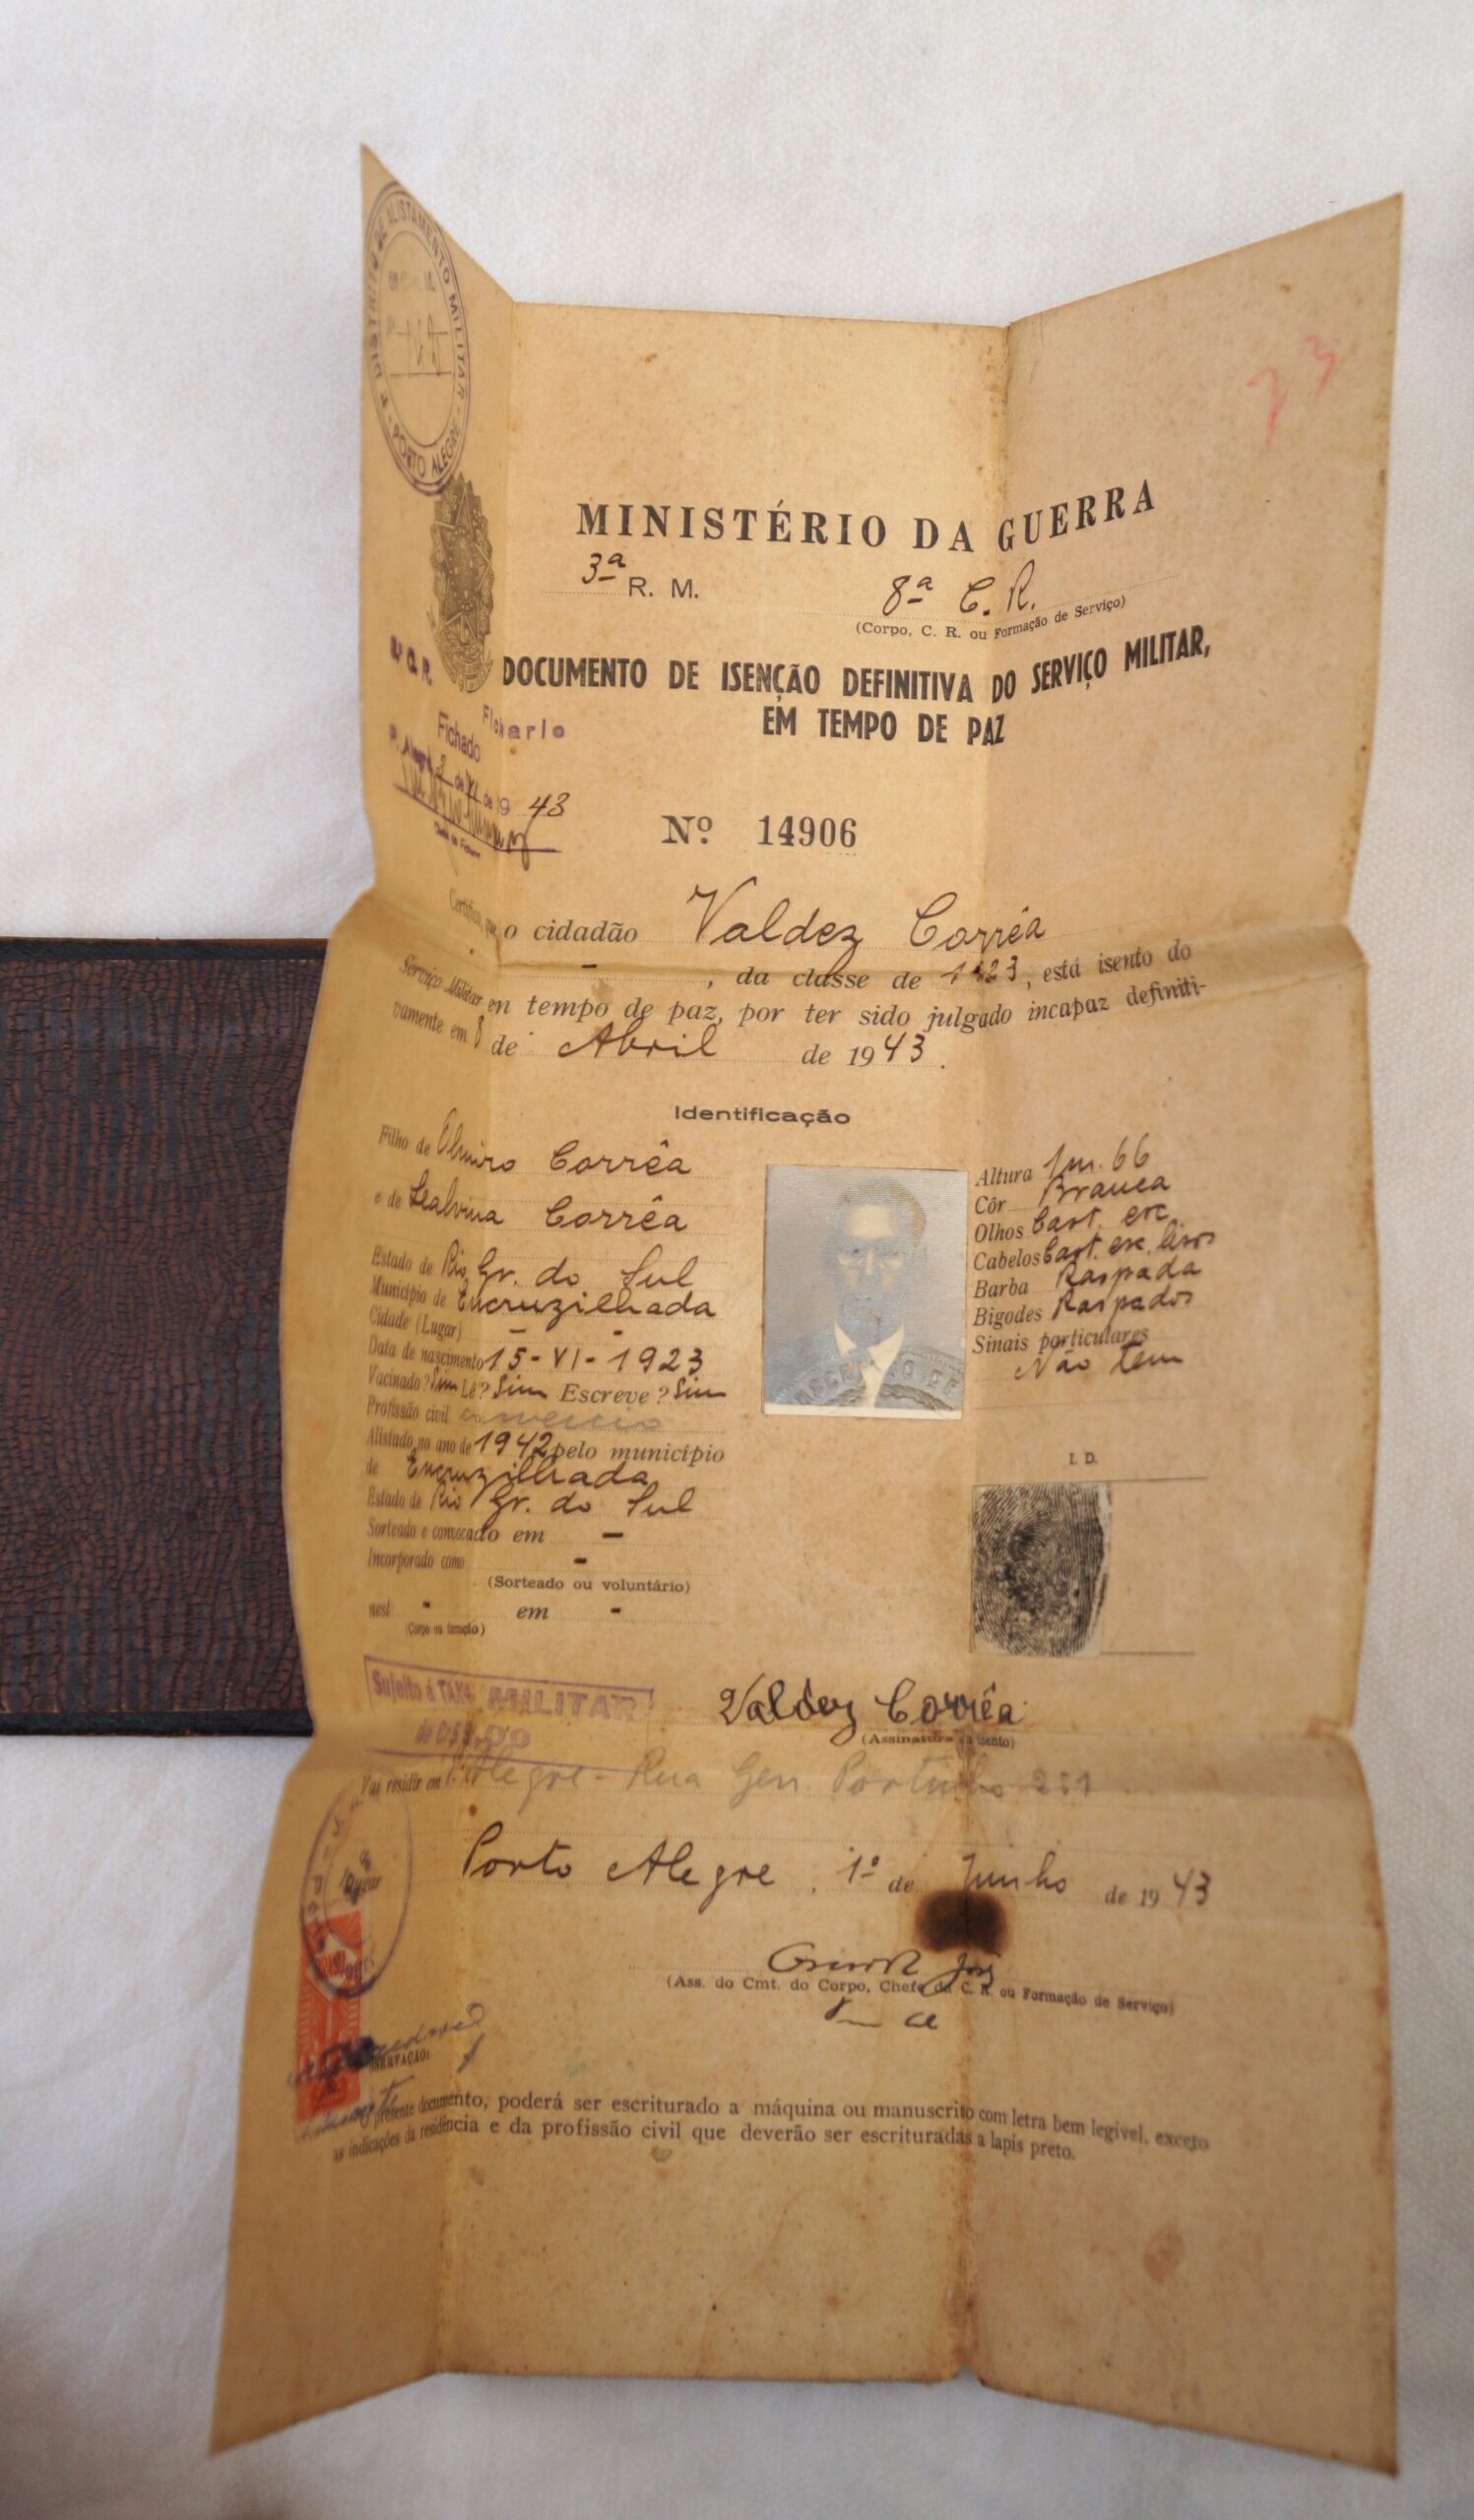 DISTRITO DE ALISTAMENTO MILITAR - PORTO ALEGRE
73
MINISTÉRIO DA GUERRA
3ª R. M. 8ª C. R.
(Corpo, C. R. ou Formação de Serviço)
DOCUMENTO DE ISENÇÃO DEFINITIVA DO SERVIÇO MILITAR,
EM TEMPO DE PAZ
Fichario
Fichado
P. Alegre de VI de 19 43
Nº 14906
Certifico, que o cidadão Valdez Corrêa
- , da classe de 1923, está isento do
Serviço Militar en tempo de paz, por ter sido julgado incapaz definiti-
vamente em 8 de Abril de 1943.
Identificação
Filho de Olmiro Corrêa
e de Lealvina Corrêa
Estado de Rio Gr. do Sul
Município de Encruzilhada
Cidade (Lugar) - -
Data de nascimento 15-VI-1923
Vacinado? Sim Lê? Sim Escreve? Sim
Profissão civil comercio
Alistado no ano de 1942 pelo município
de Encruzilhada
Estado de Rio Gr. do Sul
Sorteado e convocado em -
Incorporado como -
(Sorteado ou voluntário)
nest - em -
(Corpo ou formação)
Altura 1m.66
Côr Branca
Olhos Cast. esc.
Cabelos Cast. esc. lisos
Barba Raspada
Bigodes Raspados
Sinais particulares
Não tem
I. D.
Sujeito á TAXA MILITAR
Valdez Corrêa
(Assinatura do isento)
Vai residir em P. Alegre - Rua Gen. Portinho 281
Porto Alegre, 1º de Junho de 1943
(Ass. do Cmt. do Corpo, Chefe da C. R. ou Formação de Serviço)
OBSERVAÇÃO:
O presente documento, poderá ser escriturado a máquina ou manuscrito com letra bem legivel, exceto
as indicações da residência e da profissão civil que deverão ser escrituradas a lapis preto.